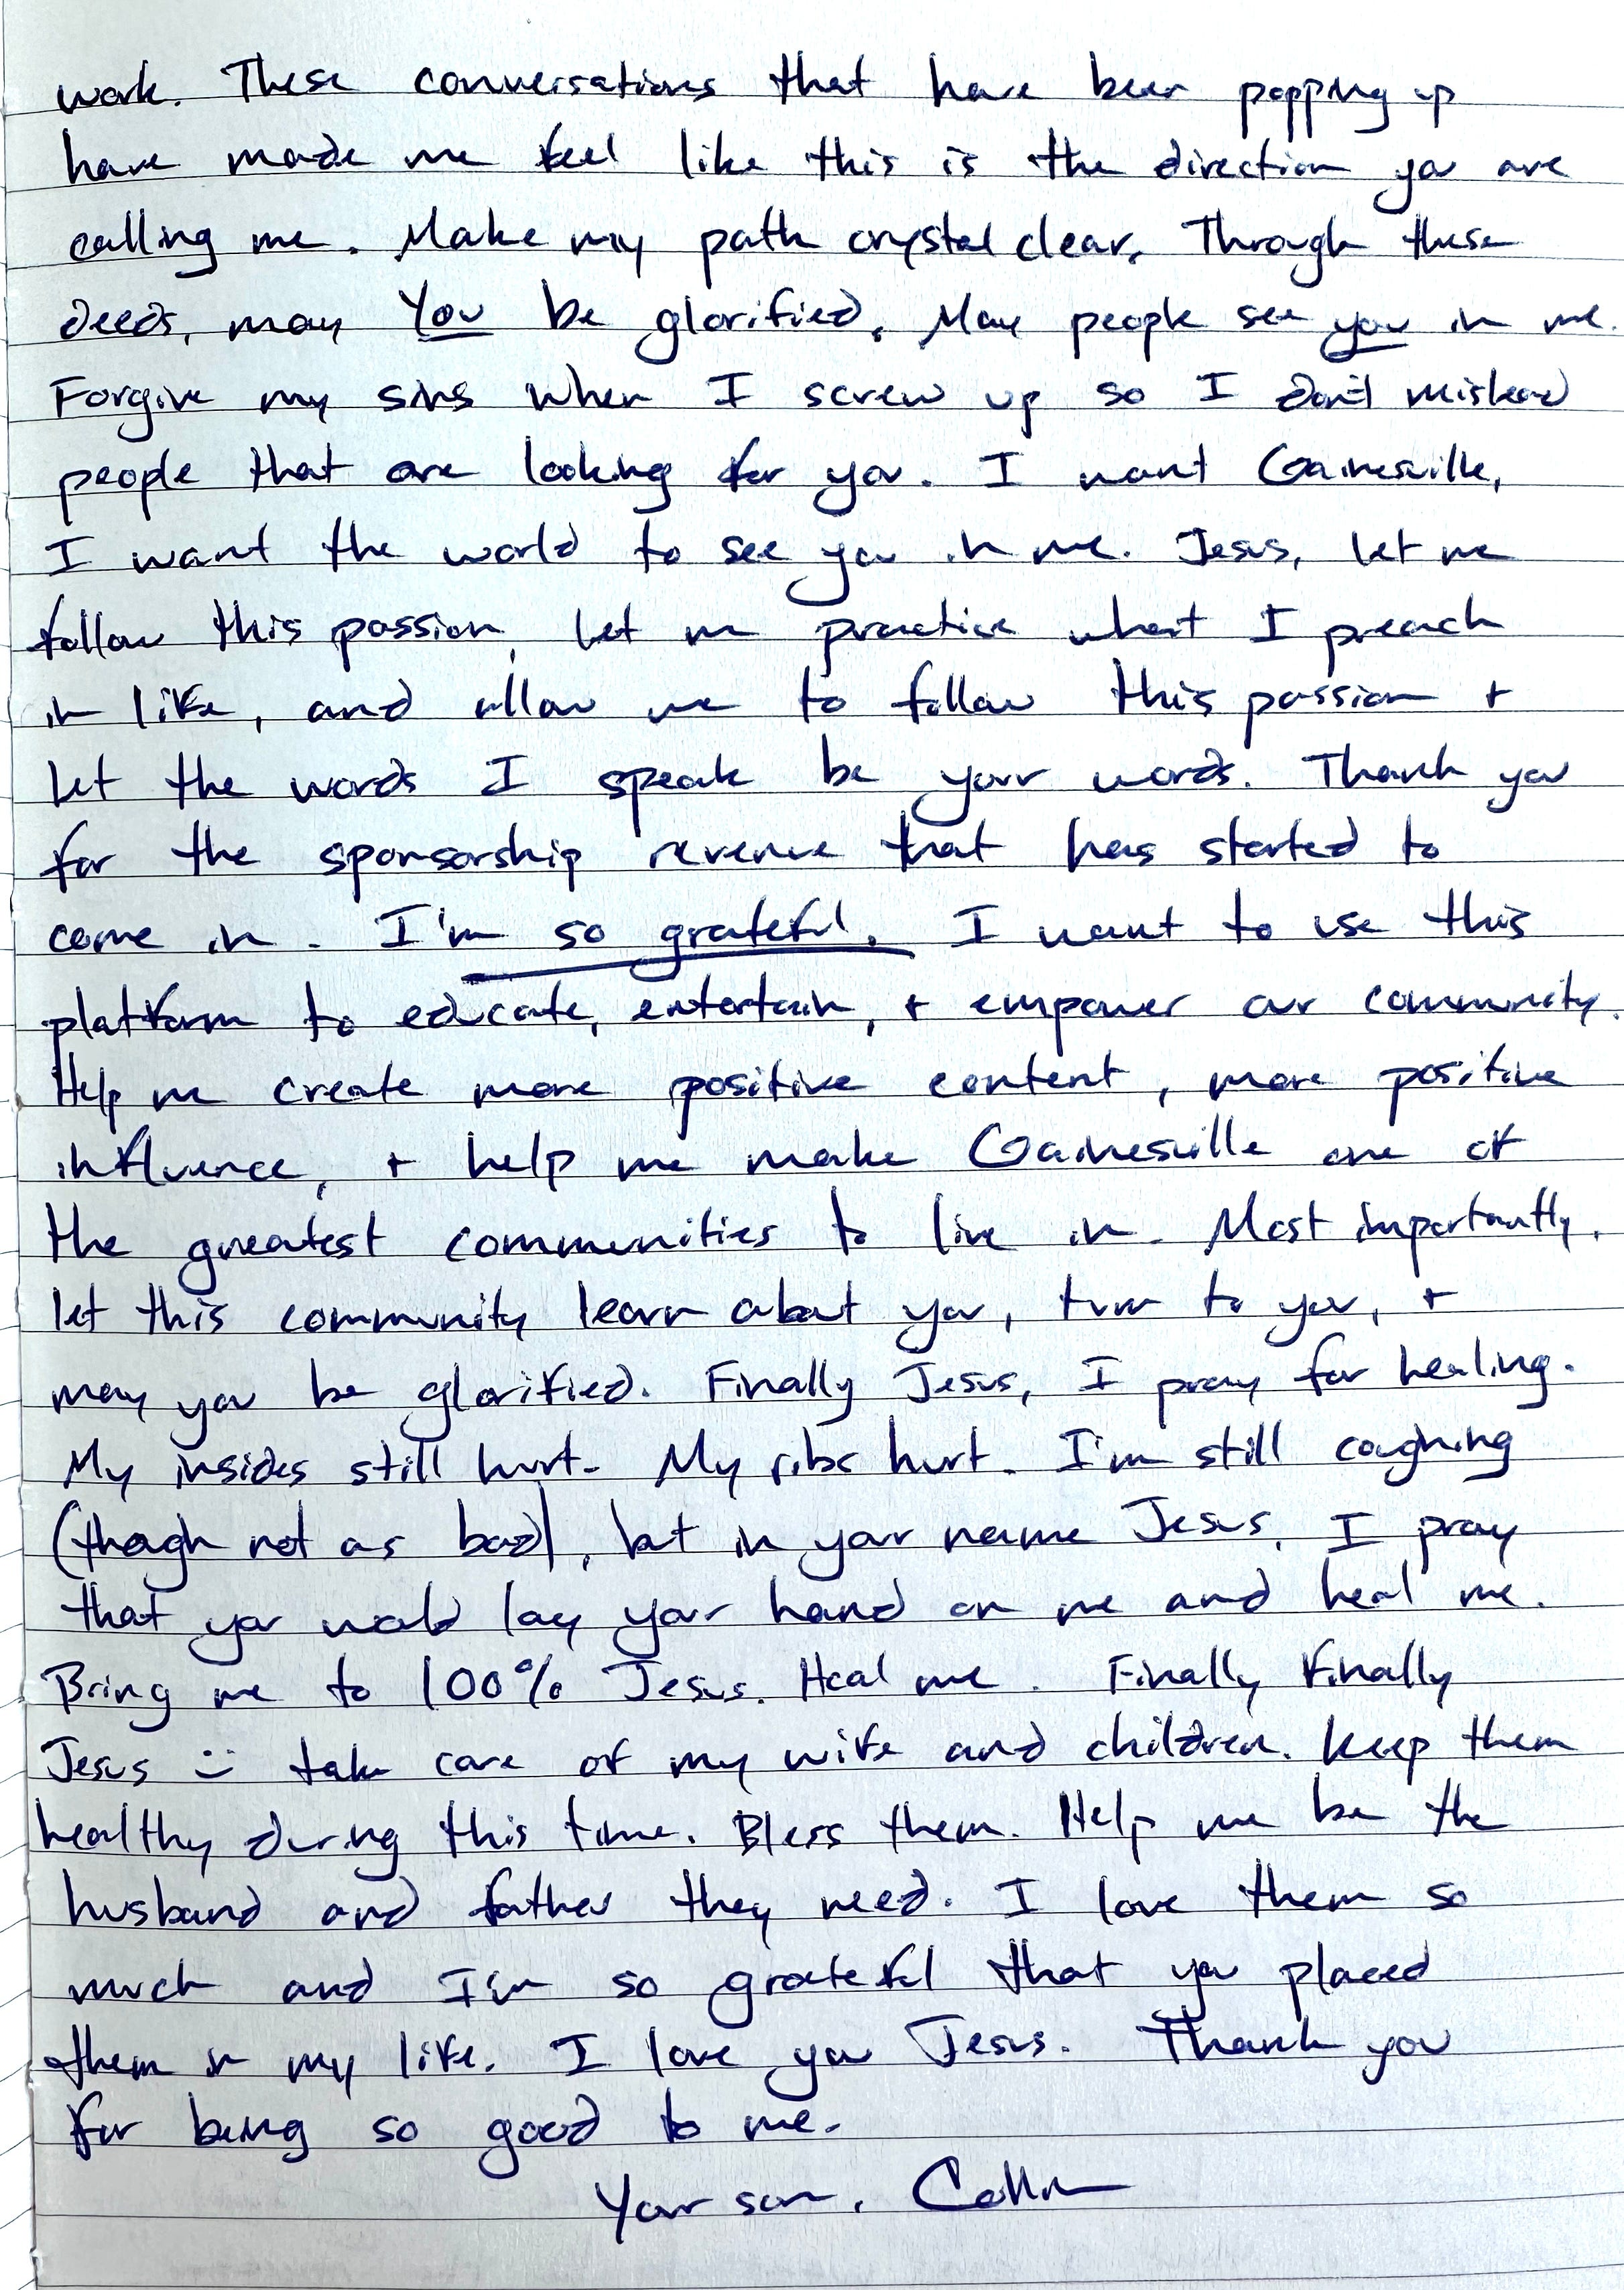 work. These conversations that have been popping up
have made me feel like this is the direction you are
calling me. Make my path crystal clear. Through these
deeds, may You be glorified. May people see you in me.
Forgive my sins when I screw up so I don't mislead
people that are looking for you. I want Gainesville,
I want the world to see you in me. Jesus, let me
follow this passion, let me practice what I preach
in life, and allow me to follow this passion +
let the words I speak be your words. Thank you
for the sponsorship revenue that has started to
come in. I'm so grateful. I want to use this
platform to educate, entertain, + empower our community.
Help me create more positive content, more positive
influence, + help me make Gainesville one of
the greatest communities to live in. Most importantly,
let this community learn about you, turn to you, +
may you be glorified. Finally Jesus, I pray for healing.
My insides still hurt. My ribs hurt. I'm still coughing
(though not as bad), but in your name Jesus, I pray
that you would lay your hand on me and heal me.
Bring me to 100% Jesus. Heal me. Finally Finally
Jesus :) take care of my wife and children. Keep them
healthy during this time. Bless them. Help me be the
husband and father they need. I love them so
much and I'm so grateful that you placed
them in my life. I love you Jesus. Thank you
for being so good to me.
Your son, Collin